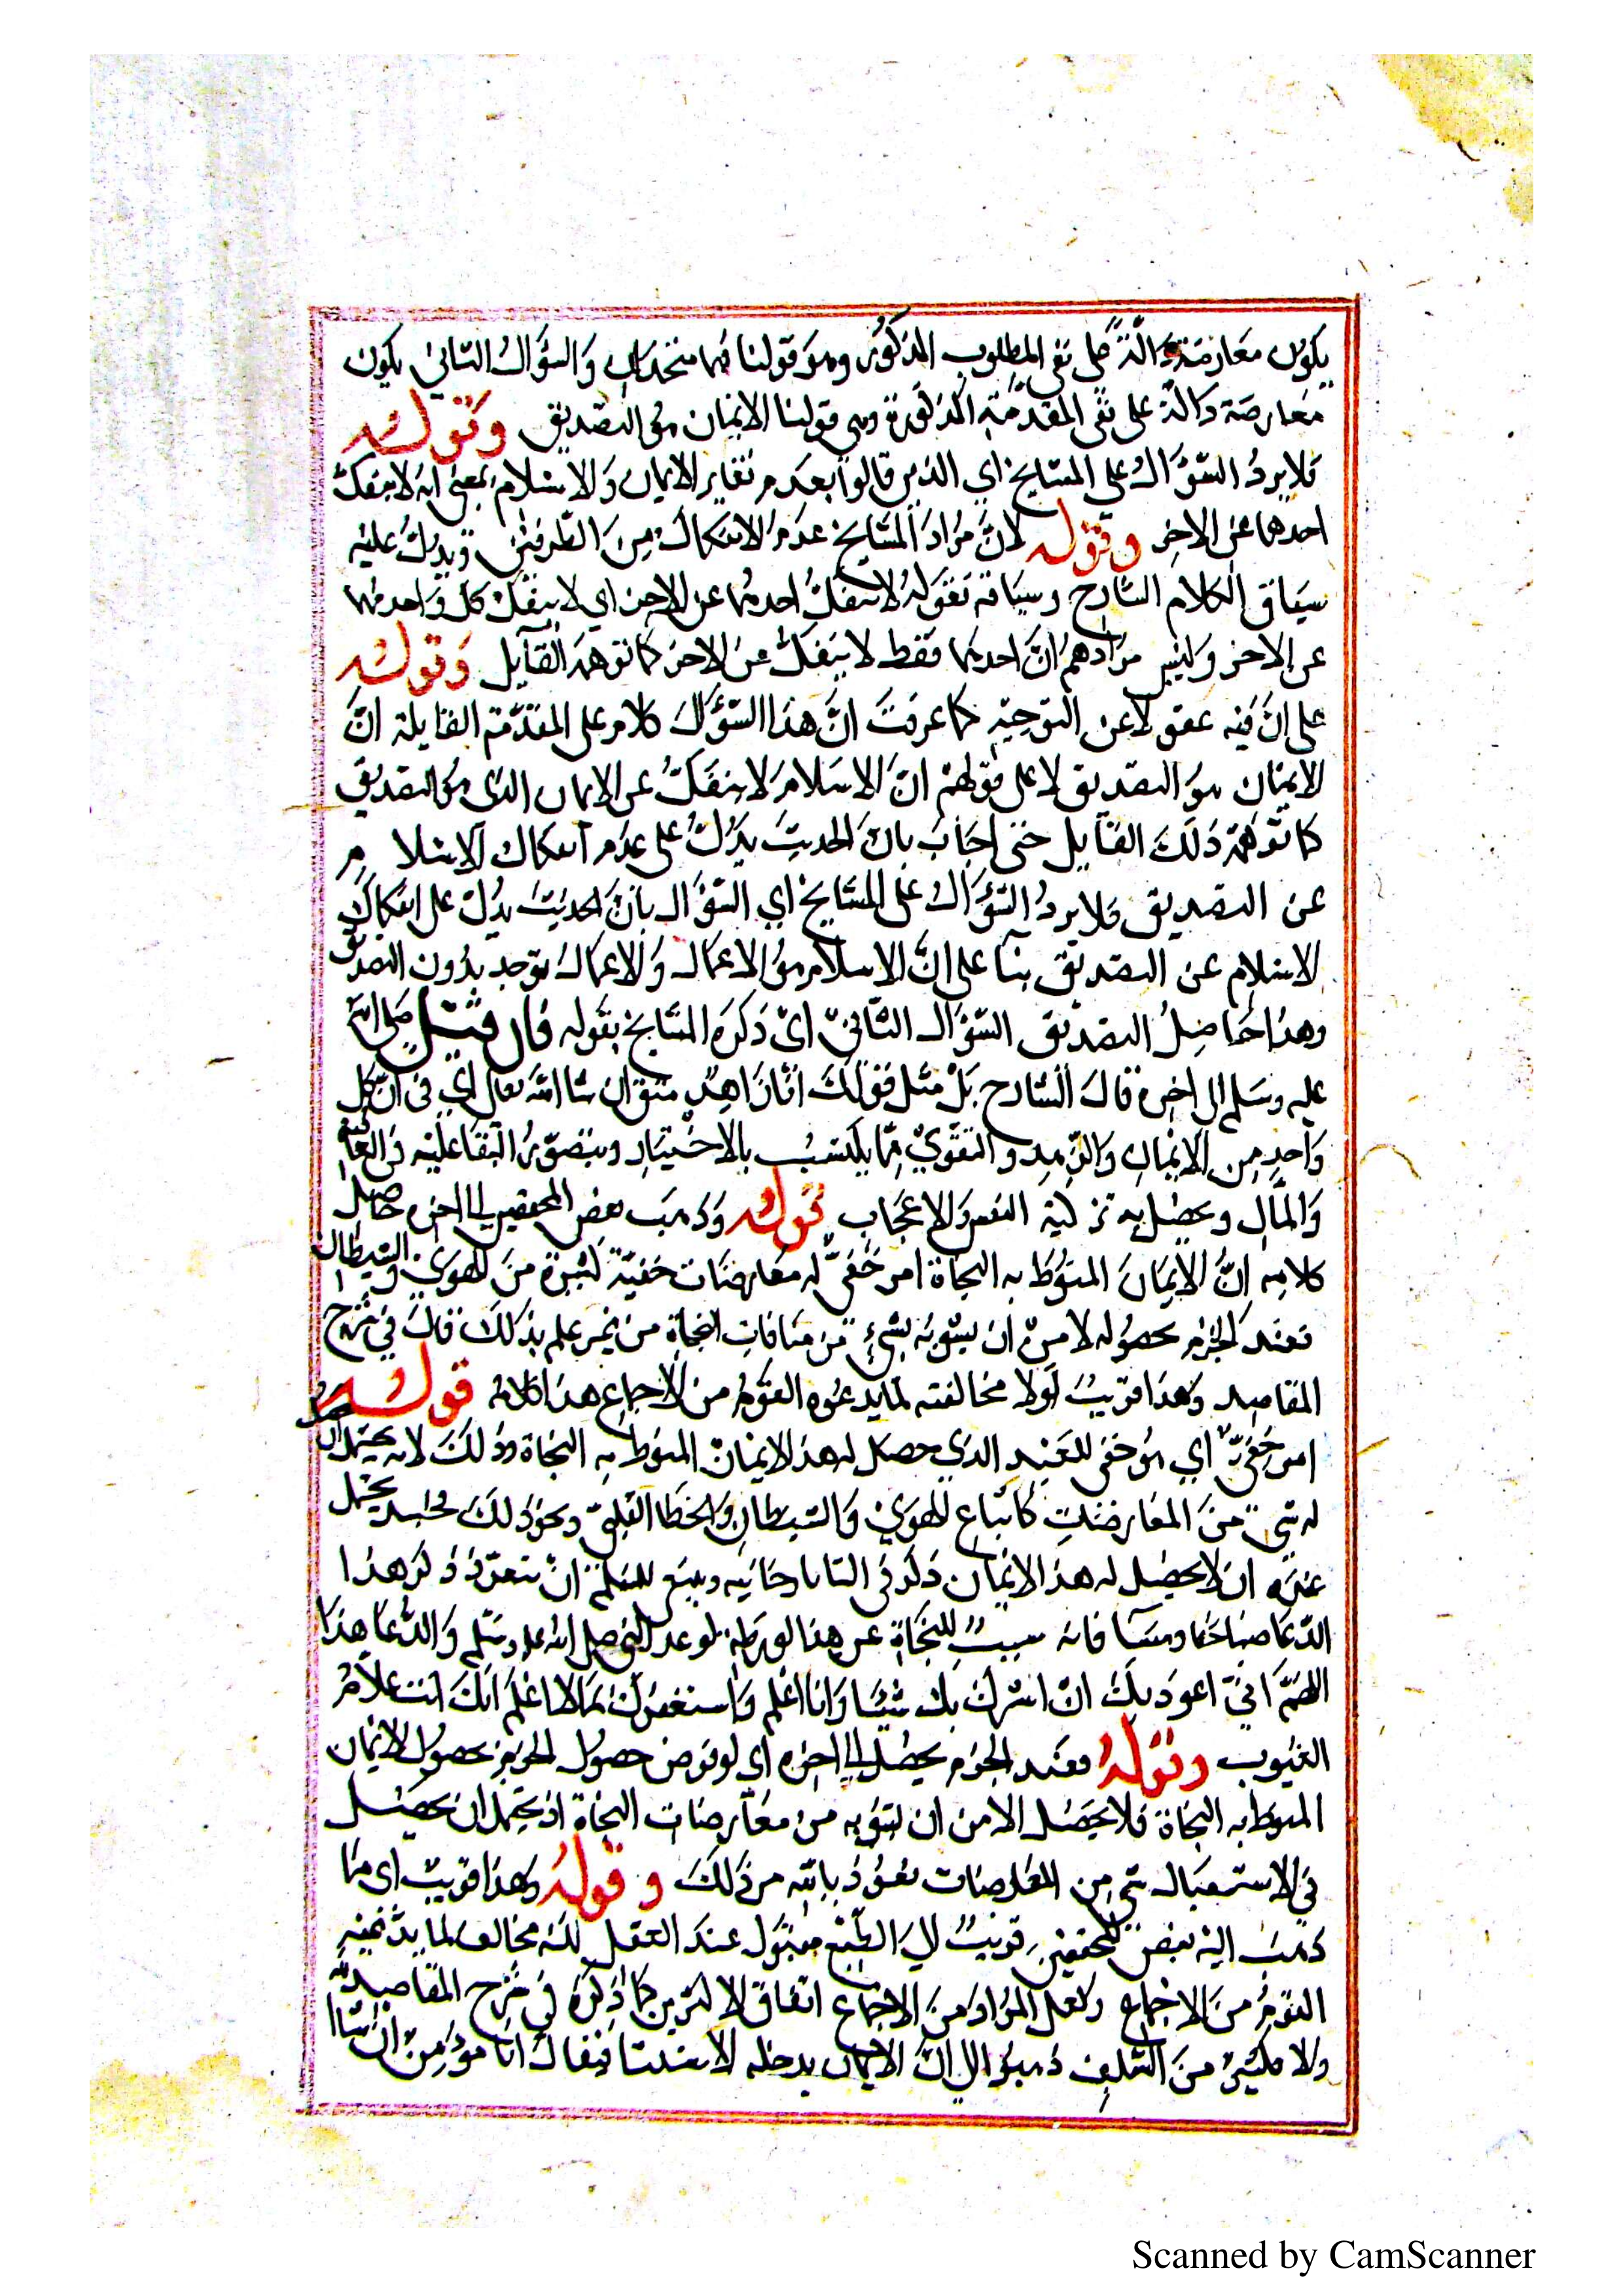 يكون معارضة دالة على نفي المطلوب المذكور وهو قولنا فهما متحدان والسؤال الثاني يكون
معارضة دالة على نفي المقدمة المذكورة وهي قولنا الايمان هو التصديق وقوله
فلا يرد السؤال على المشايخ اي الذين قالوا بعدم تغاير الايمان والاسلام بمعنى انه لا ينفك
احدهما عن الاخر وقوله لان مراد المشايخ عدم الانفكاك من الطرفين ويدل عليه
سياق الكلام الشارح وسياقه بقوله لا ينفك احدهما عن الاخر اي لا ينفك كل واحد منهما
عن الاخر وليس مرادهم ان احدهما فقط لا ينفك عن الاخر كما توهمه القايل وقوله
على ان فيه عقولا عن التوجيه كما عرفت ان هذا السؤال كلام على المقدمة القايلة ان
الايمان هو التصديق لا على قولهم ان الاسلام لا ينفك عن الايمان الذي هو التصديق
كما توهمه ذلك القايل حتى اجاب بان الحديث يدل على عدم انفكاك الاسلام
عن التصديق فلا يرد السؤال على المشايخ اي السؤال بان الحديث يدل على انفكاك
الاسلام عن التصديق بنا على ان الاسلام هو الاعمال والاعمال توجد بدون التصديق
وهذا حاصل التصديق السؤال الثاني اي ذكره المشايخ بقوله فان قيل صلى الله
عليه وسلم الى اخره قال الشارح بل مثل قولك انا زاهد متق ان شا الله تعالى اي في ان كل
واحد من الايمان والزهد والتقوي مما يكتسب بالاختيار ويتصور البقا عليه في العاقبة
والمال ويحصل به تزكية النفس والاعجاب قوله وذهب بعض المحققين الى اخره حاصل
كلامه ان الايمان المنوط به النجاة امر خفي له معارضات خفية كثيرة من الهوي والشيطان
فعند الجزم بحصوله لا من ان يشوبه شيء من منافات النجاة من غير علم بذلك قال في شرح
المقاصد وهذا قريب لولا مخالفته لما يدعوه القوم من الاجماع هذا كلامه قوله
امر خفي اي هو خفي للعبد الذي حصل له هذا الايمان المنوط به النجاة وذلك لانه يحتمل ان
له شي من المعارضات كاتباع الهوي والشيطان والخطا القلبي ونحو ذلك يحتمل
عنده ان لا يحصل له هذا الايمان ذكر في التاتارخانيه وينبغي للمسلم ان يتعوذ ذكر هذا
الدعا صباحا ومسا فانه سبب للنجاة عن هذا الورطة لوعد النبي صلى الله عليه وسلم والدعا هذا
اللهم اني اعوذ بك ان اشرك بك شيئا وانا اعلم واستغفرك لما لا اعلم انك انت علام
الغيوب وقوله فعند الجزم بحصله الى اخره اي لو فرض حصول الجزم بحصول الايمان
المنوط به النجاة فلا يحصل الامن ان يشوبه من معارضات النجاة اذ يحتمل ان يحصل
في الاستقبال شي من المعارضات نعوذ بالله من ذلك وقوله وهذا قريب اي ما
ذهب اليه بعض المحققين قريب الى الطبع مقبول عند العقل لكنه مخالف لما يدعيه
القوم من الاجماع ولعل المراد من الاجماع اتفاق الاكثرين كما ذكره في شرح المقاصد
والا فكثير من السلف ذهبوا الى ان الايمان يدخله الاستثنا فيقال انا مؤمن ان شا

Scanned by CamScanner